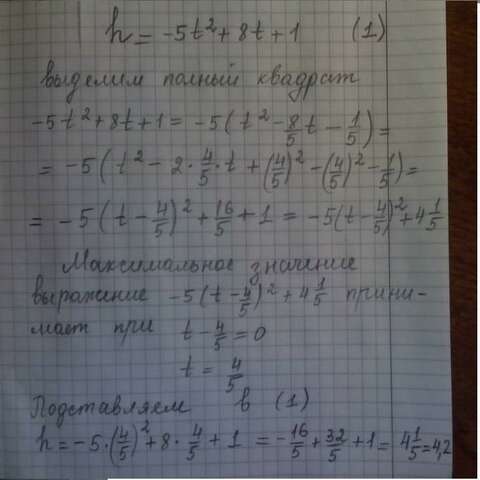 h = -5t² + 8t + 1 (1)
выделим полный квадрат
-5t² + 8t + 1 = -5(t² - 8/5 t - 1/5) =
= -5(t² - 2·4/5·t + (4/5)² - (4/5)² - 1/5) =
= -5(t - 4/5)² + 16/5 + 1 = -5(t - 4/5)² + 4 1/5
Максимальное значение
выражение -5(t - 4/5)² + 4 1/5 прини-
мает при t - 4/5 = 0
t = 4/5
Подставляем в (1)
h = -5·(4/5)² + 8·4/5 + 1 = -16/5 + 32/5 + 1 = 4 1/5 = 4,2